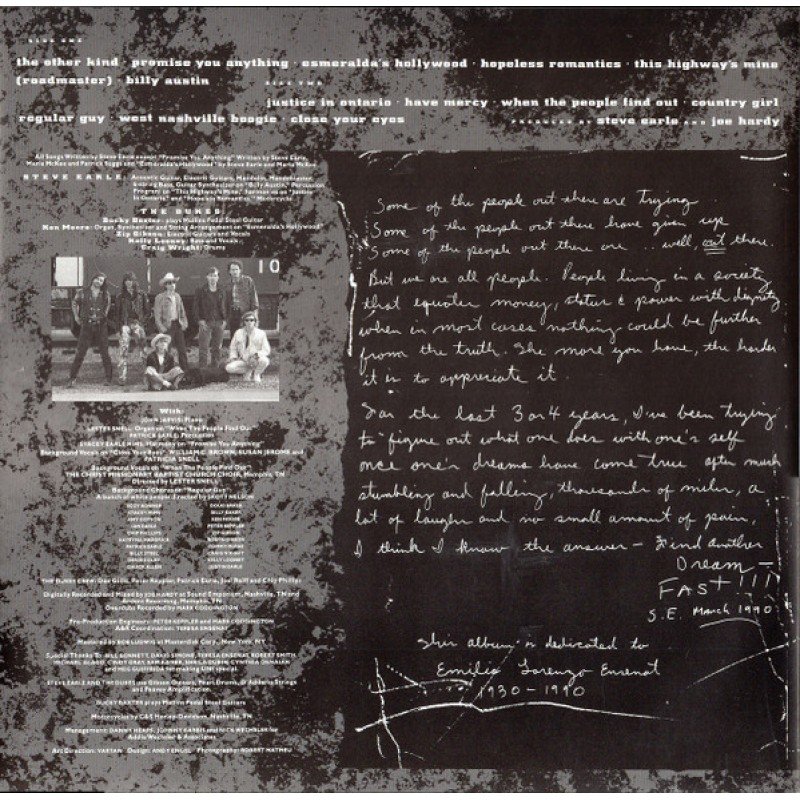 SIDE ONE
the other kind · promise you anything · esmeralda's hollywood · hopeless romantics · this highway's mine
(roadmaster) · billy austin
SIDE TWO
justice in ontario · have mercy · when the people find out · country girl
regular guy · west nashville boogie · close your eyes
PRODUCED BY steve earle AND joe hardy
All Songs Written by Steve Earle except "Promise You Anything" Written by Steve Earle,
Maria McKee and Patrick Suggs and "Esmeralda's Hollywood" by Steve Earle and Maria McKee
STEVE EARLE: Acoustic Guitar, Electric Guitars, Mandolin, Mandoblaster,
Guitar Synthesizer on "Billy Austin," Percussion
Program on "This Highway's Mine," on "Justice
In Ontario," and "Hopeless Romantics," Motorcycle
THE DUKES:
Bucky Baxter: plays Mullins Pedal Steel Guitar
Ken Moore: Organ, Synthesizer and String Arrangement on "Esmeralda's Hollywood"
Zip Gibson: Electric Guitars and Vocals
Kelly Looney: Bass and Vocals
Craig Wright: Drums
10
With:
JOHN JARVIS: Piano
LESTER SNELL: Organ on "When The People Find Out"
PATRICK EARLE: Percussion
STACEY EARLE MIMS: Harmony on "Promise You Anything"
Background Vocals on "Close Your Eyes": WILLIAM C. BROWN, SUSAN JEROME and
PATRICIA SNELL
Background Vocals on "When The People Find Out":
THE CHRIST MISSIONARY BAPTIST CHURCH CHOIR, Memphis, TN
Directed by LESTER SNELL
Background Chorus on "Regular Guy":
A bunch of white people directed by SCOTT NELSON
THE DUKES CREW: Dan Gillis, Peter Keppler, Patrick Earle, Joel and Chip Phillips
Digitally Recorded and Mixed by JOE HARDY at Sound Emporium, Nashville, TN and
Ardent Recording, Memphis, TN
Overdubs Recorded by MARK CODDINGTON
Pre-Production Engineers: PETER KEPPLER and MARK CODDINGTON
A&R Coordination: TERESA ENSENAT
Mastered by BOB LUDWIG at Masterdisk Corp., New York, NY
Special Thanks To: BILL BENNETT, DAVID SIMONE, TERESA ENSENAT, ROBERT SMITH,
STEVE EARLE AND THE DUKES use Gibson Guitars, Pearl Drums, D'Addario Strings
and Peavey Amplification.
BUCKY BAXTER plays Mullins Pedal Steel Guitars
Motorcycles by C&S Harley-Davidson, Nashville, TN
Art Direction: VARTAN Design: Photographer: ROBERT MATHEU
Some of the people out there are trying
Some of the people out there have given up
Some of the people out there are - well, out there.
But we are all people. People living in a society
that equates money, status & power with dignity
when in most cases nothing could be further
from the truth. The more you have, the harder
it is to appreciate it.
For the last 3 or 4 years, I've been trying
to figure out what one does with one's self
once one's dreams have come true after much
stumbling and falling, thousands of miles, a
lot of laughs and no small amount of pain,
I think I know the answer - Find Another
Dream -
FAST!!!
S.E. March 1990
This album is dedicated to
Emilio Lorenzo Ensenat
1930 - 1990